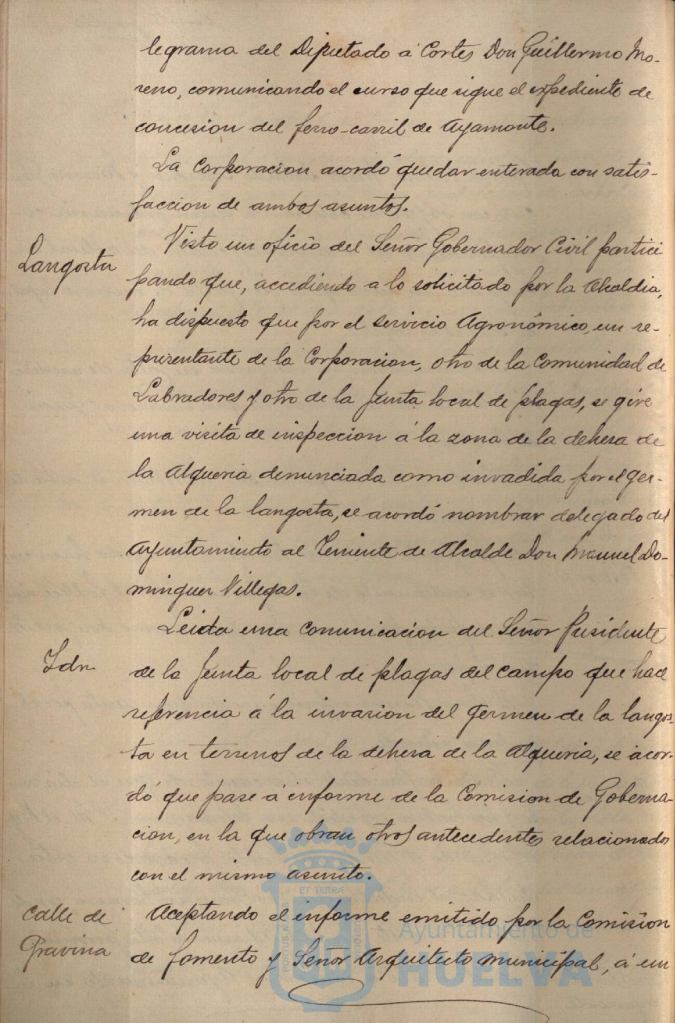 legrama del Diputado á Cortes Don Guillermo Mo-
reno, comunicando el curso que sigue el expediente de
concesion del ferro-carril de Ayamonte.
La Corporacion acordó quedar enterada con satis-
faccion de ambos asuntos.
Langosta
Visto un oficio del Señor Gobernador Civil partici
pando que, accediendo a lo solicitado por la Alcaldia,
ha dispuesto que por el servicio Agronómico, un re-
presentante de la Corporacion, otro de la Comunidad de
Labradores y otro de la Junta local de plagas, se gire
una visita de inspeccion á la zona de la dehesa de
la Alqueria denunciada como invadida por el ger-
men de la langosta, se acordó nombrar delegado del
Ayuntamiento al Teniente de Alcalde Don Manuel Do-
minguez Villegas.
Idm
Leida una comunicacion del Señor Presidente
de la Junta local de plagas del campo que hace
referencia á la invasion del germen de la langos-
ta en terrenos de la dehesa de la Alqueria, se acor-
dó que pase á informe de la Comision de Goberna-
cion, en la que obran otros antecedentes relacionados
con el mismo asunto.
Calle de
Gravina
Aceptando el informe emitido por la Comision
de fomento y Señor Arquitecto municipal, á un
Ayuntamiento de
HUELVA